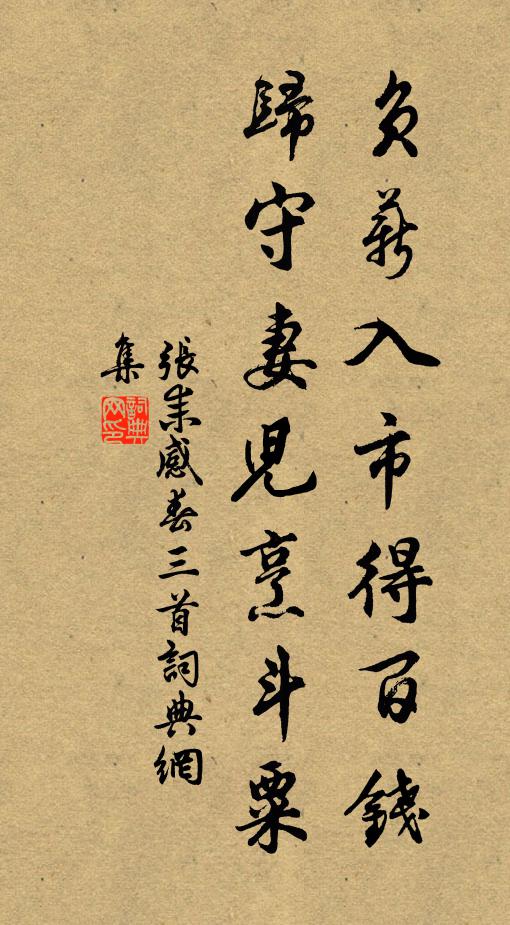 負薪入市得百錢
歸守妻兒烹斗粟
張耒感春三首詞典網
集
詞典
网印